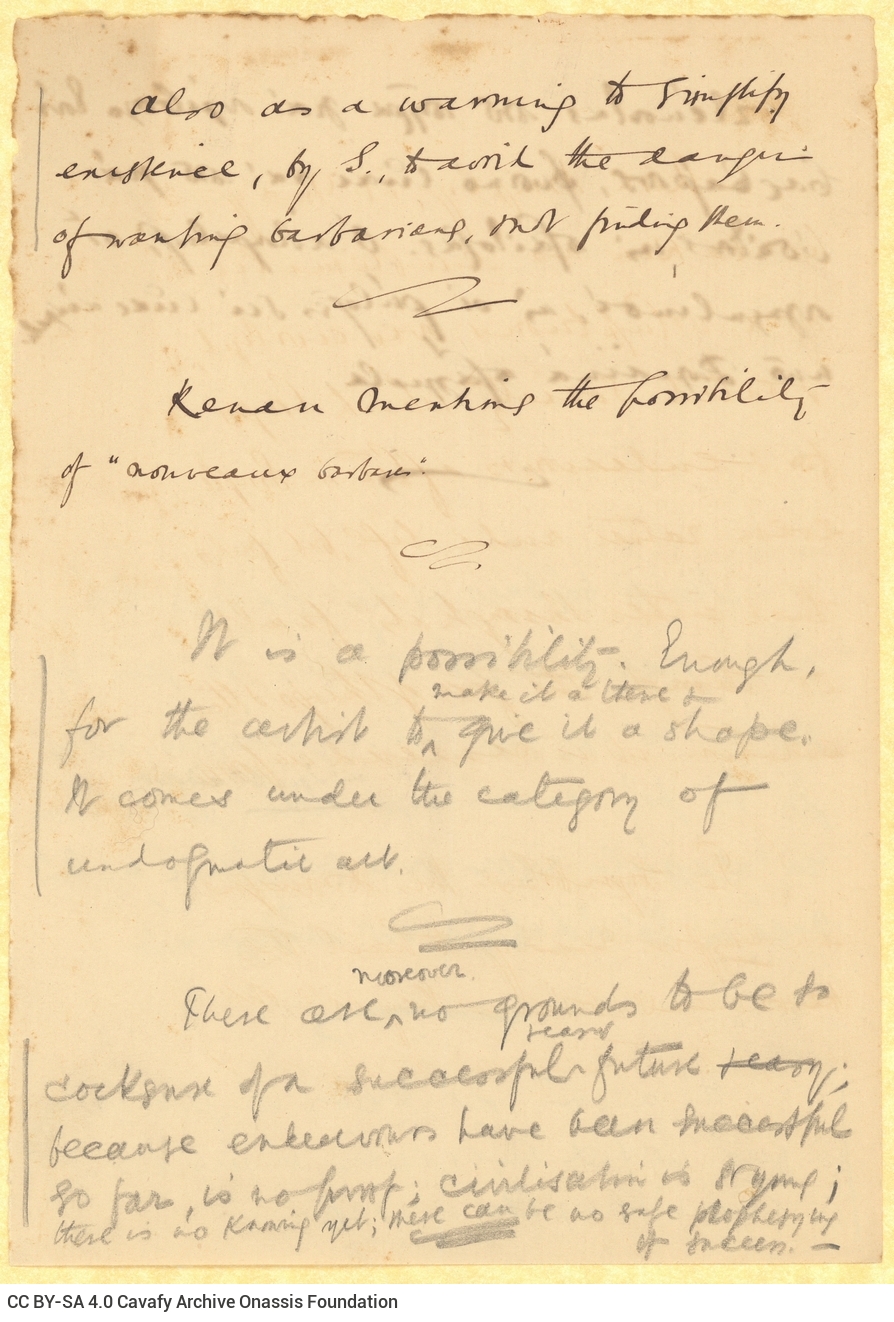 also as a warning to simplify
existence, by S., to avoid the danger
of wanting barbarians, & not finding them.
Renan mentions the possibility
of "nouveaux barbares".
It is a possibility. Enough,
make it a theme &
for the artist to give it a shape.
It comes under the category of
undogmatic art.
moreover
There are no grounds to be so
cocksure of a successful future
because endeavours have been successful
so far, is no proof; civilisation is so young;
there is no knowing yet; there can be no safe prophesying
of success. —
CC BY-SA 4.0 Cavafy Archive Onassis Foundation